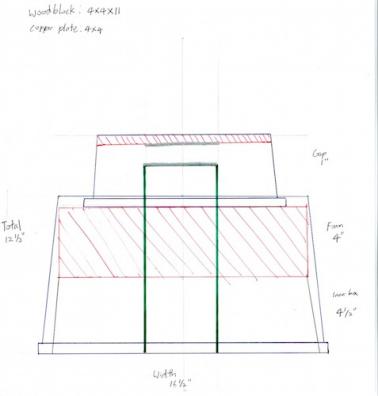 Woodblock: 4x4x11
Copper plate: 4x4
Gap
1"
Total
12½"
Foam
4"
Inner box
4½"
Width
16½"